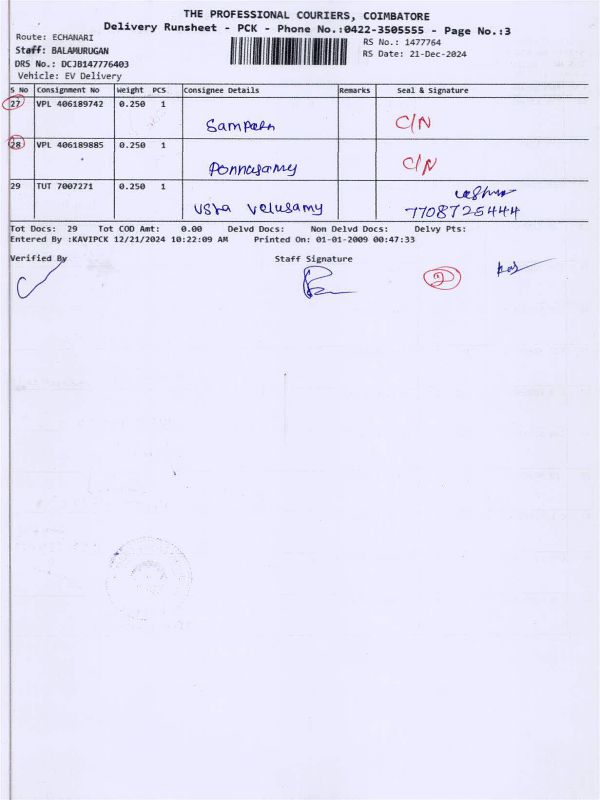 THE PROFESSIONAL COURIERS, COIMBATORE
Delivery Runsheet - PCK - Phone No.:0422-3505555 - Page No.:3
Route: ECHANARI
RS No.: 1477764
Staff: BALAMURUGAN
RS Date: 21-Dec-2024
DRS No.: DCJB147776403
Vehicle: EV Delivery
S No Consignment No Weight PCS Consignee Details Remarks Seal & Signature
27 VPL 406189742 0.250 1
Sampath C/N
28 VPL 406189885 0.250 1
Ponnusamy C/N
29 TUT 7007271 0.250 1
Usha Velusamy 7708725444
Tot Docs: 29 Tot COD Amt: 0.00 Delvd Docs: Non Delvd Docs: Delvy Pts:
Entered By :KAVIPCK 12/21/2024 10:22:09 AM Printed On: 01-01-2009 00:47:33
Verified By Staff Signature
2